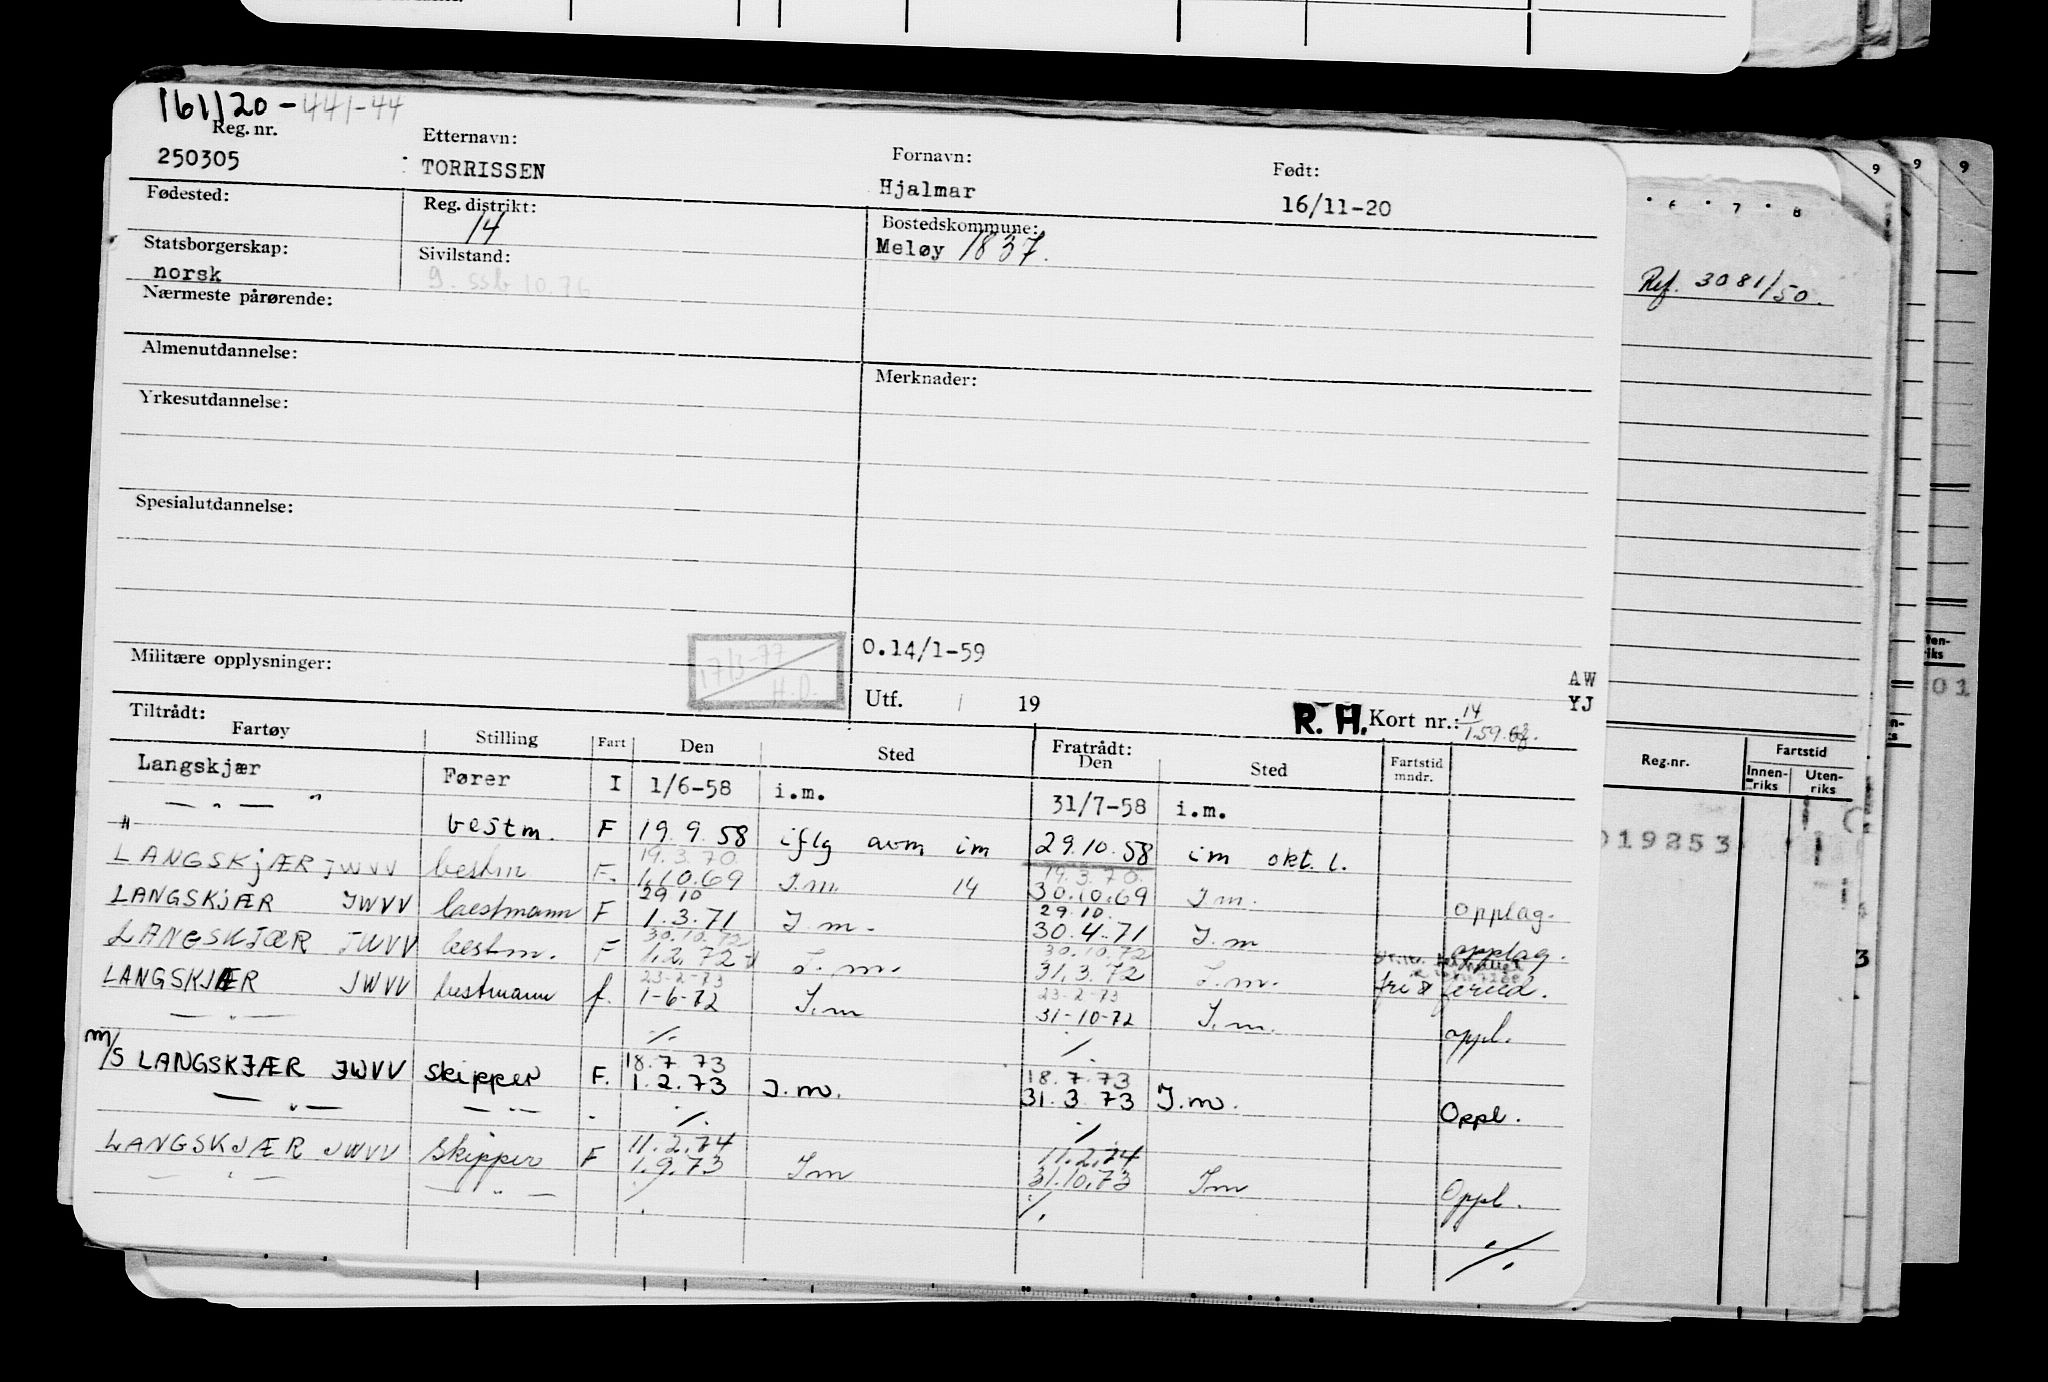 161120-441-44
Reg. nr. Etternavn: Fornavn: Født:
250305 TORRISSEN Hjalmar 16/11-20
Fødested: Reg. distrikt: Bostedskommune:
14 Meløy 1837.
Statsborgerskap: Sivilstand:
norsk g. ssb 10.76
Nærmeste pårørende:
Ref. 3081/50.
Almenutdannelse:
Merknader:
Yrkesutdannelse:
Spesialutdannelse:
Militære opplysninger: 17/3-77 H.O. O.14/1-59
AW
YJ
Utf. / 19 R.H. Kort nr.: 14/1.59.
Tiltrådt: Fratrådt:
Fartøy Stilling Fart Den Sted Den Sted Fartstid mndr.
Langskjær Fører I 1/6-58 i.m. 31/7-58 i.m.
— " — " bestm. F 19.9.58 iflg avm im 29.10.58 im okt. l.
" 19.3.70. 19.3.70.
LANGSKJÆR JWVV bestm F. 1.10.69 I.m 14 30.10.69 I.m. Opplag.
29 10 29.10.
LANGSKJÆR JWVV bestmann F 1.3.71 I.m. 30.4.71 I.m opplag.
30.10.72 30.10.72
LANGSKJÆR JWVV bestm. F 1.2.72 I.m. 31.3.72 I.m. fri &
23-2-73 23-2-73
LANGSKJÆR JWVV bestmann f. 1-6-72 I.m 31-10-72 I.m. oppl.
— " — ./. ./.
18.7.73 18.7.73
m/s LANGSKJÆR JWVV skipper F. 1.2.73 I.m. 31.3.73 I.m. Oppl.
— " — — " — ./. ./.
11.2.74 11.2.74
LANGSKJÆR JWVV Skipper F 1.9.73 Im 31.10.73 Im Oppl.
— " — — " — ./. ./.
./.
6 7 8
9 9 9
Reg.nr. Fartstid
Innen-riks Uten-riks
019253
3
01